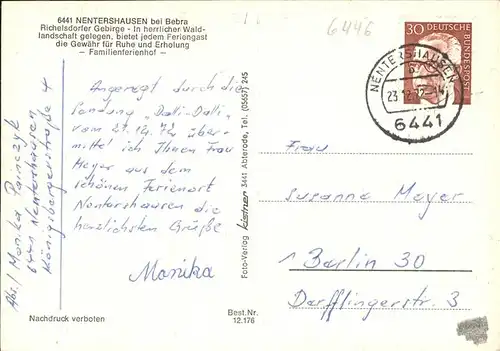 6441 NENTERSHAUSEN bei Bebra
Richelsdorfer Gebirge - In herrlicher Wald-
landschaft gelegen, bietet jedem Feriengast
die Gewähr für Ruhe und Erholung
– Familienferienhof –
6446
30 DEUTSCHE
BUNDESPOST
NENTERSHAUSEN
23.12.72-14
6441
Angeregt durch die
Sendung "Dalli-Dalli"
vom 21.12.72 über-
mittel ich Ihnen Frau
Meyer aus dem
schönen Ferienort
Nentershausen die
herzlichsten Grüße
Monika
Abs./ Monika
6441 Nentershausen
Königsbergerstraße 4
Foto-Verlag kistner 3441 Abterode, Tel. (05657) 245
Frau
Susanne Meyer
1 Berlin 30
Derfflingerstr. 3
Nachdruck verboten
Best.Nr.
12.176